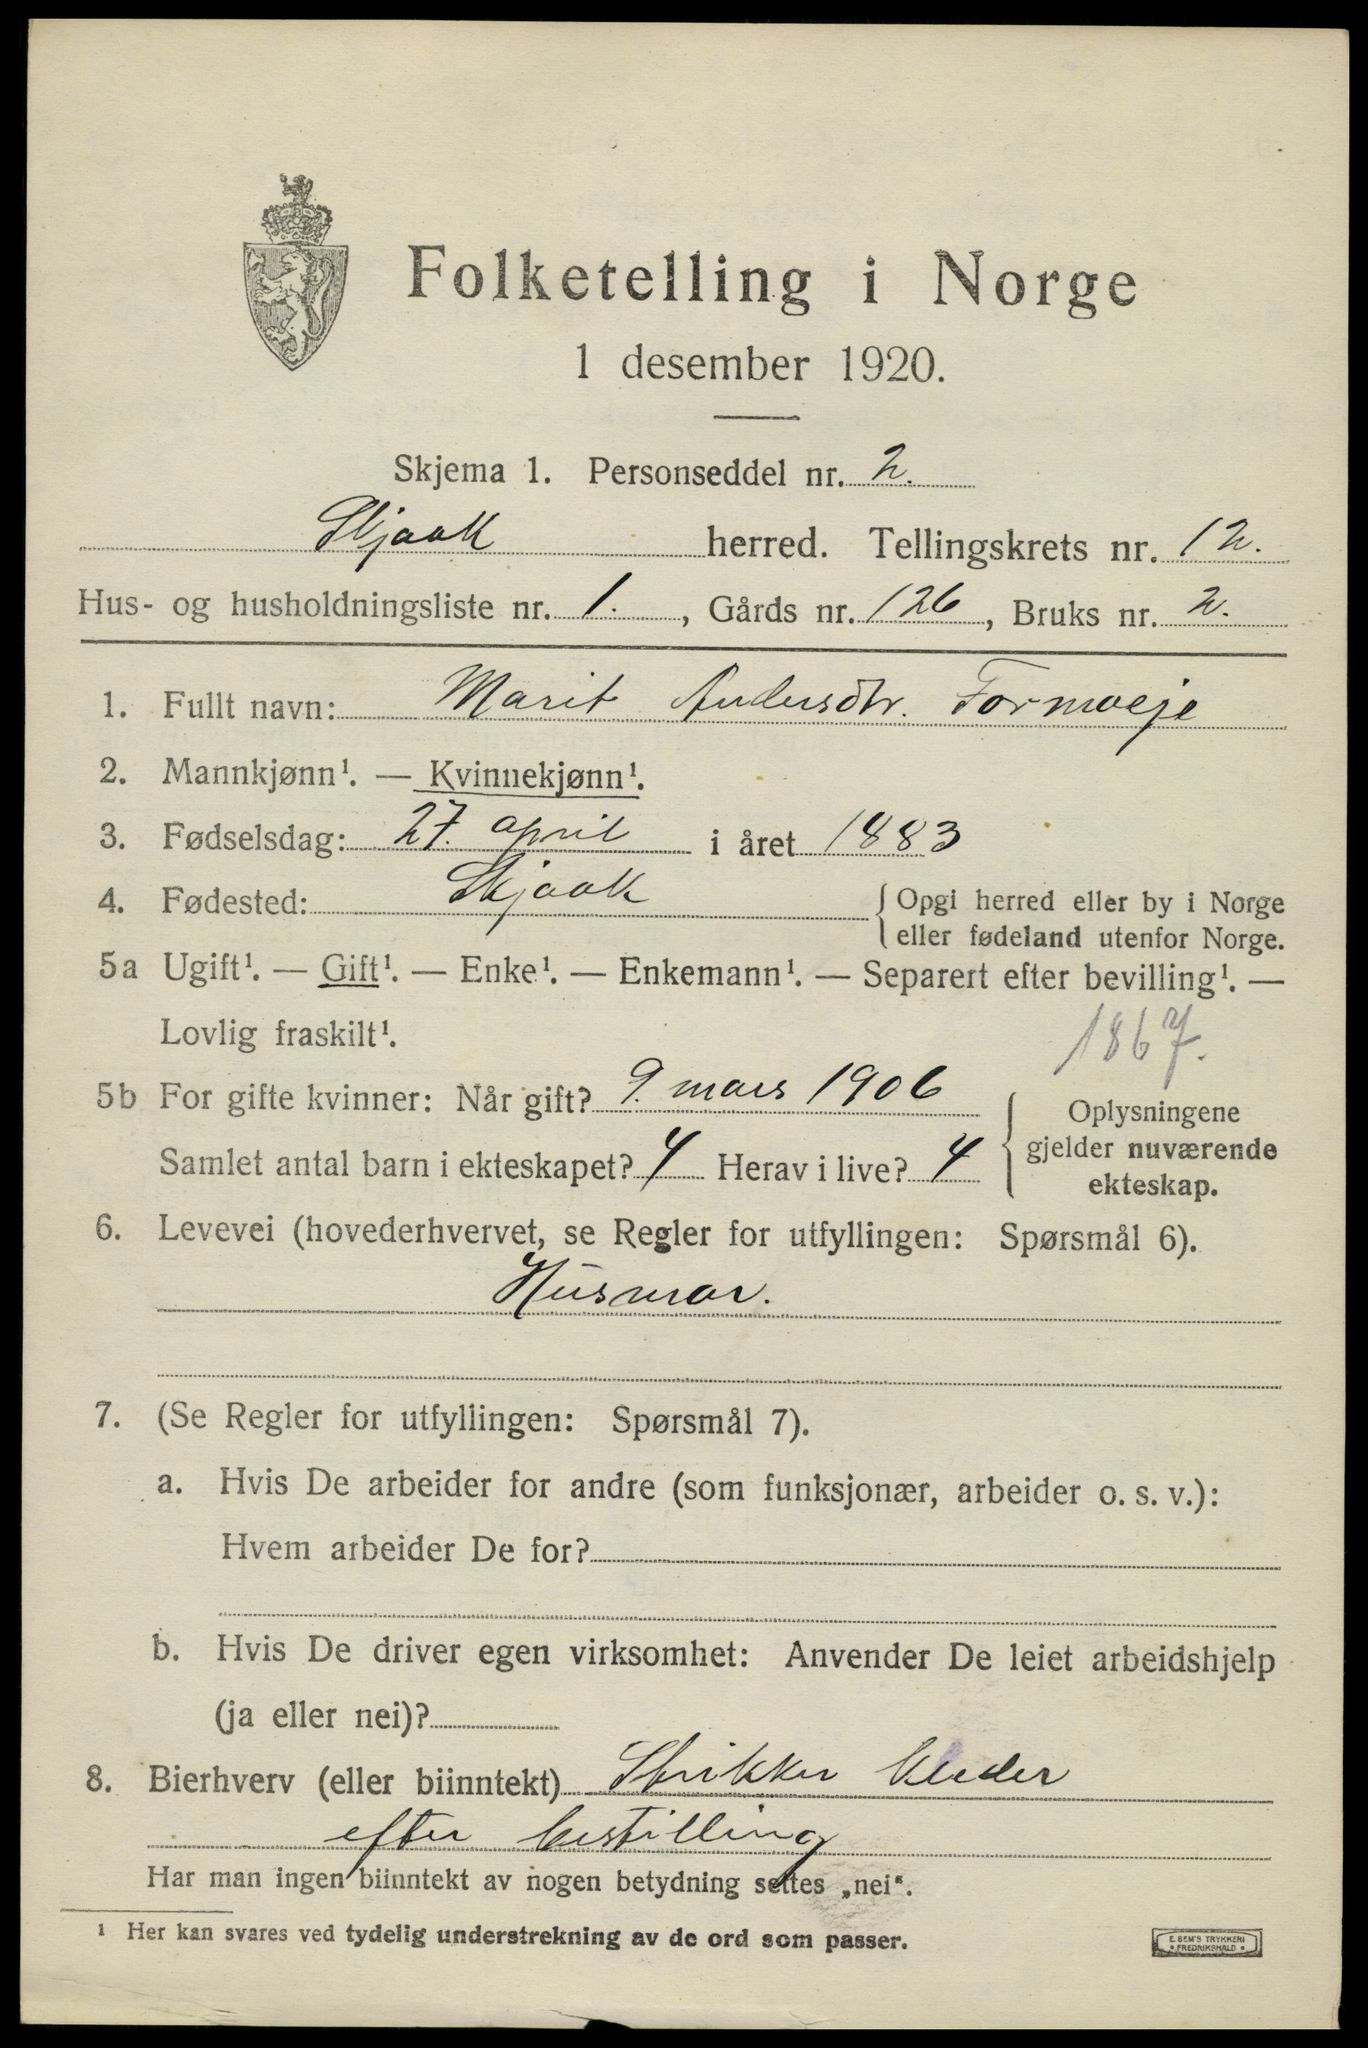 Folketelling i Norge
1 desember 1920.
Skjema 1. Personseddel nr. 2.
Skjaak herred. Tellingskrets nr. 12.
Hus- og husholdningsliste nr. 1., Gårds nr. 126, Bruks nr. 2.
1. Fullt navn: Marit Andersdtr. Formoeje
2. Mannkjønn¹. — Kvinnekjønn¹.
3. Fødselsdag: 27. april i året 1883
4. Fødested: Skjaak { Opgi herred eller by i Norge
eller fødeland utenfor Norge.
5a Ugift¹. — Gift¹. — Enke¹. — Enkemann¹. — Separert efter bevilling¹. —
Lovlig fraskilt¹.
1867.
5b For gifte kvinner: Når gift? 9. mars 1906
Samlet antal barn i ekteskapet? 4 Herav i live? 4
Oplysningene
gjelder nuværende
ekteskap.
6. Levevei (hovederhvervet, se Regler for utfyllingen: Spørsmål 6).
Husmor.
7. (Se Regler for utfyllingen: Spørsmål 7).
a. Hvis De arbeider for andre (som funksjonær, arbeider o. s. v.):
Hvem arbeider De for?
b. Hvis De driver egen virksomhet: Anvender De leiet arbeidshjelp
(ja eller nei)?
8. Bierhverv (eller biinntekt) Strikker kleder
efter bestilling
Har man ingen biinntekt av nogen betydning settes „nei“.
¹ Her kan svares ved tydelig understrekning av de ord som passer.
E. SEM'S TRYKKERI
• FREDRIKSHALD •